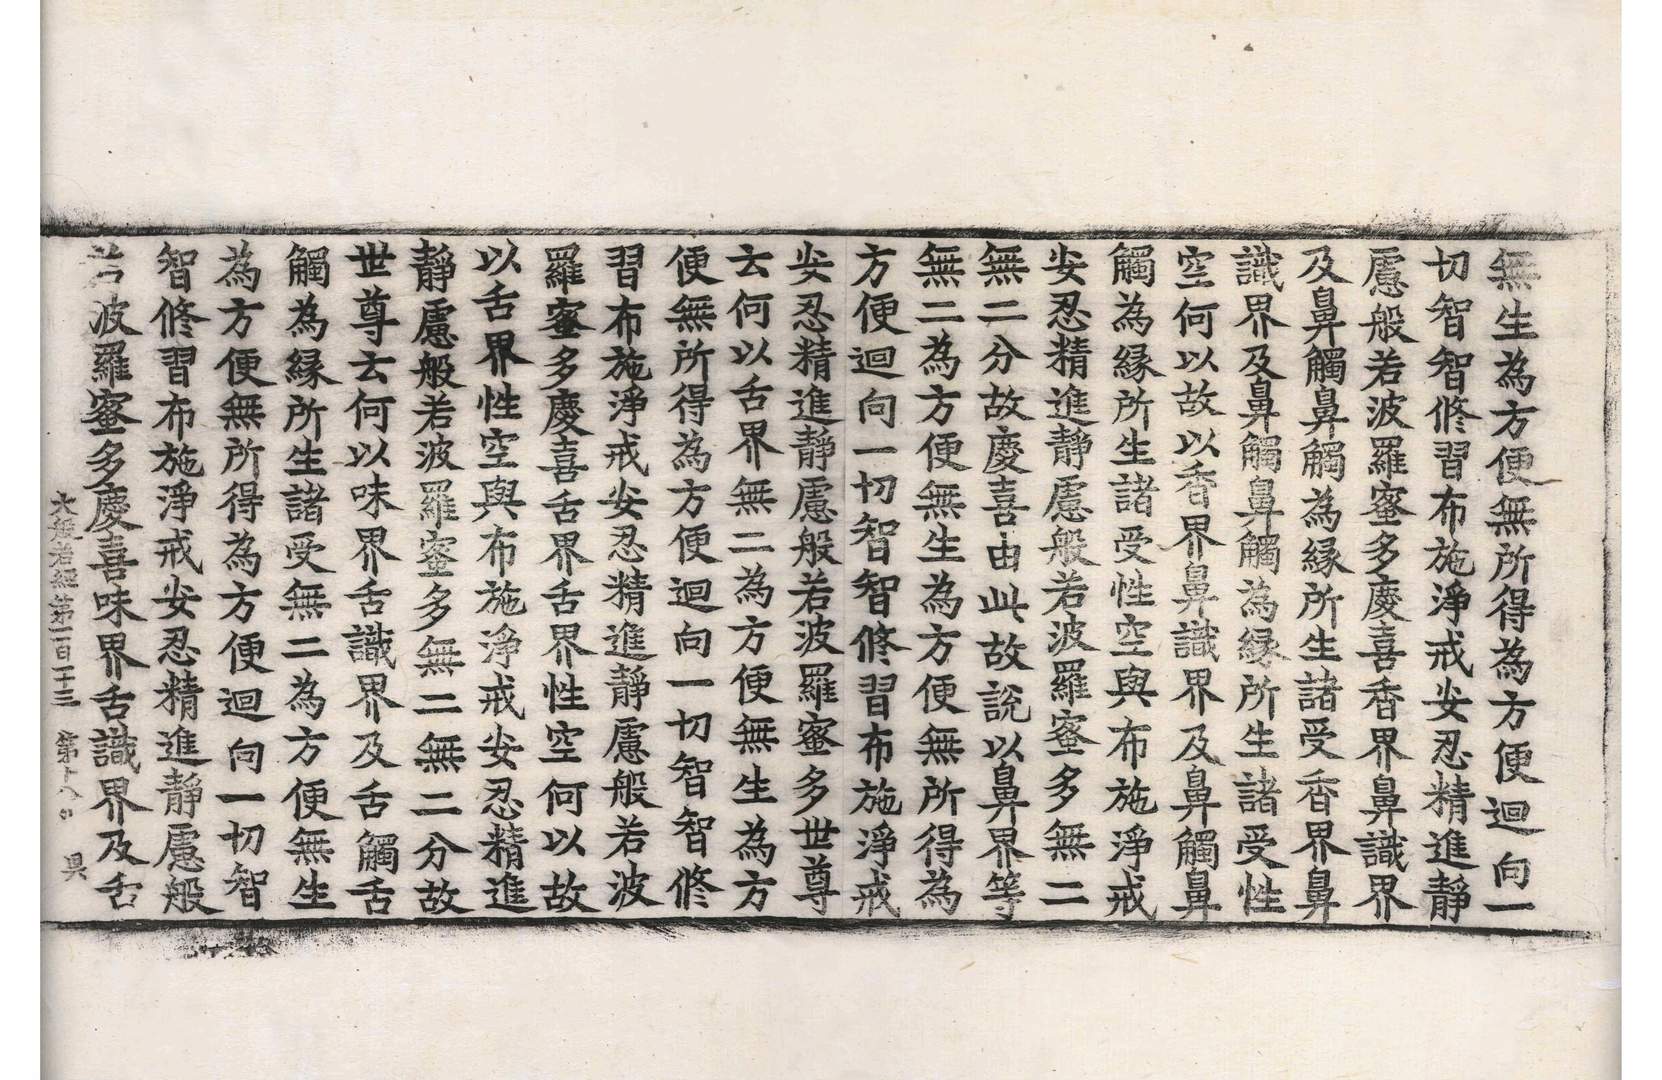 無生為方便無所得為方便迴向一
切智智修習布施淨戒安忍精進靜
慮般若波羅蜜多慶喜香界鼻識界
及鼻觸鼻觸為縁所生諸受香界鼻
識界及鼻觸鼻觸為縁所生諸受性
空何以故以香界鼻識界及鼻觸鼻
觸為縁所生諸受性空與布施淨戒
安忍精進靜慮般若波羅蜜多無二
無二分故慶喜由此故說以鼻界等
無二為方便無生為方便無所得為
方便迴向一切智智修習布施淨戒
安忍精進靜慮般若波羅蜜多世尊
云何以舌界無二為方便無生為方
便無所得為方便迴向一切智智修
習布施淨戒安忍精進靜慮般若波
羅蜜多慶喜舌界舌界性空何以故
以舌界性空與布施淨戒安忍精進
靜慮般若波羅蜜多無二無二分故
世尊云何以味界舌識界及舌觸舌
觸為縁所生諸受無二為方便無生
為方便無所得為方便迴向一切智
智修習布施淨戒安忍精進靜慮般
若波羅蜜多慶喜味界舌識界及舌
大般若經第一百一十三 第十八